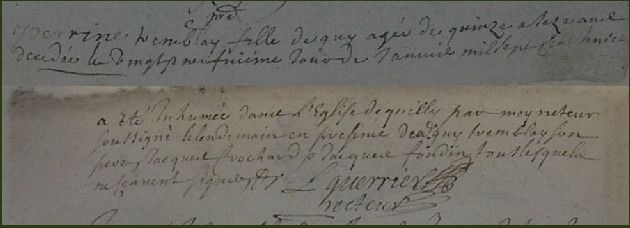 perrine tremblay fille de guy agée de quinze a seze ans
decedée le vingt neufvieme Jour de Janvie mil sept cent huict
a eté Inhumée dans L'Eglise de quilly par moy recteur
soussigné le lendemain en presence de guy tremblay son
pere Jacques frochard Jacques fondin tous lesquels
ne sçavent signer
L guerrier
recteur